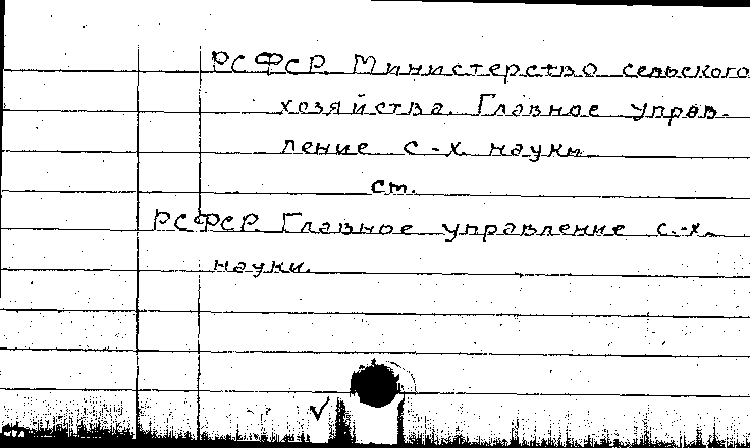 РСФСР. Министерство сельского
хозяйства. Главное управ-
ление с.-х. науки
см.
РСФСР. Главное управление с.-х.
науки.